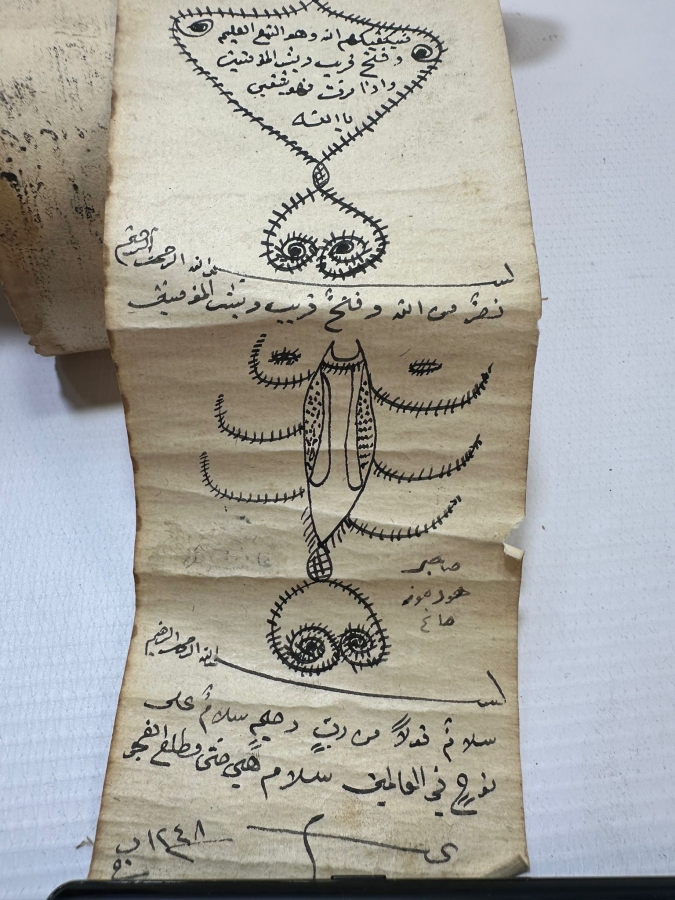 فسيكفيكهم الله وهو السميع العليم
و فتح قريب و بشر المؤمنين
واذا مرضت فهو يشفين
يا الله
بسم الله الرحمن الرحيم
نصر من الله و فتح قريب و بشر المؤمنين
بسم الله الرحمن الرحيم
سلامٌ قولاً من ربٍ رحيمٍ سلامٌ على
نوحٍ في العالمين سلام هي حتى مطلع الفجر
١٢٤٨